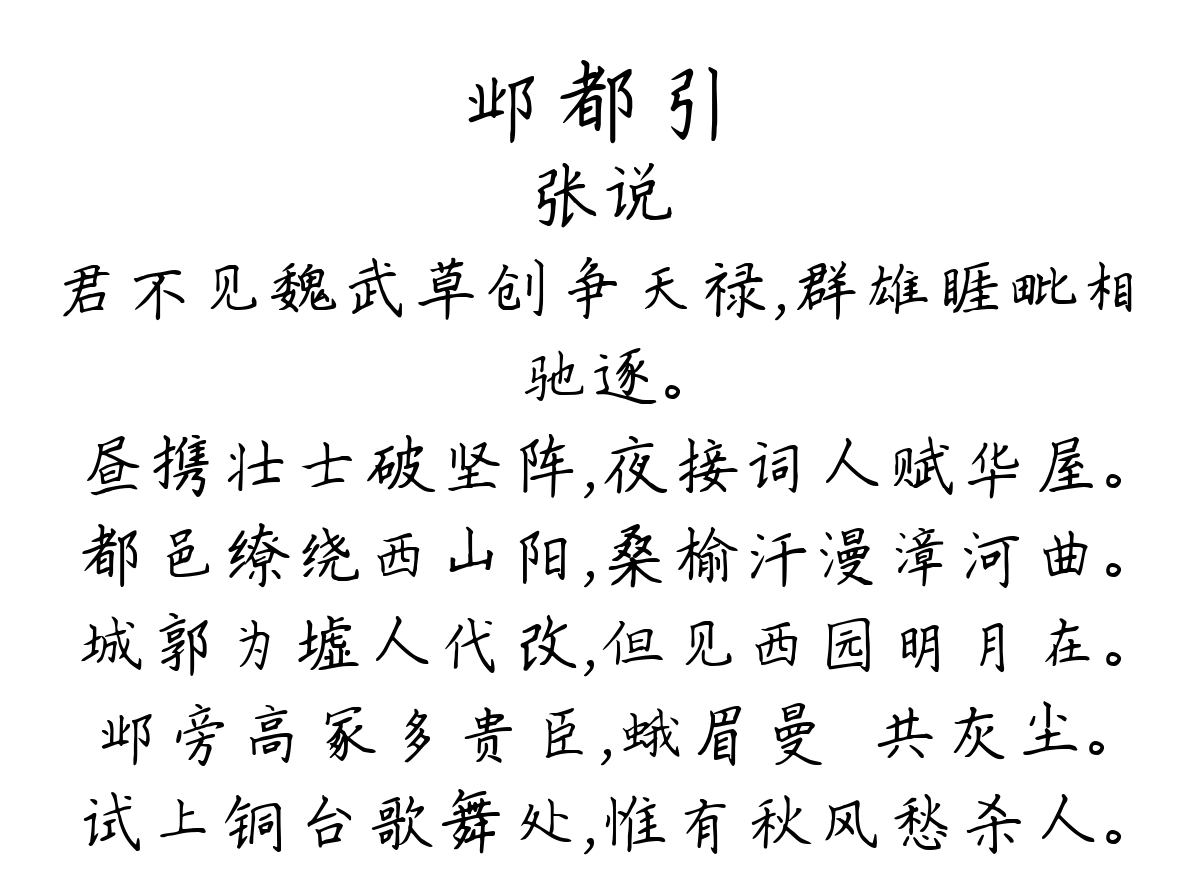 邺都引
张说
君不见魏武草创争天禄,群雄睚毗相
驰逐。
昼携壮士破坚阵,夜接词人赋华屋。
都邑缭绕西山阳,桑榆汗漫漳河曲。
城郭为墟人代改,但见西园明月在。
邺旁高冢多贵臣,蛾眉曼 共灰尘。
试上铜台歌舞处,惟有秋风愁杀人。